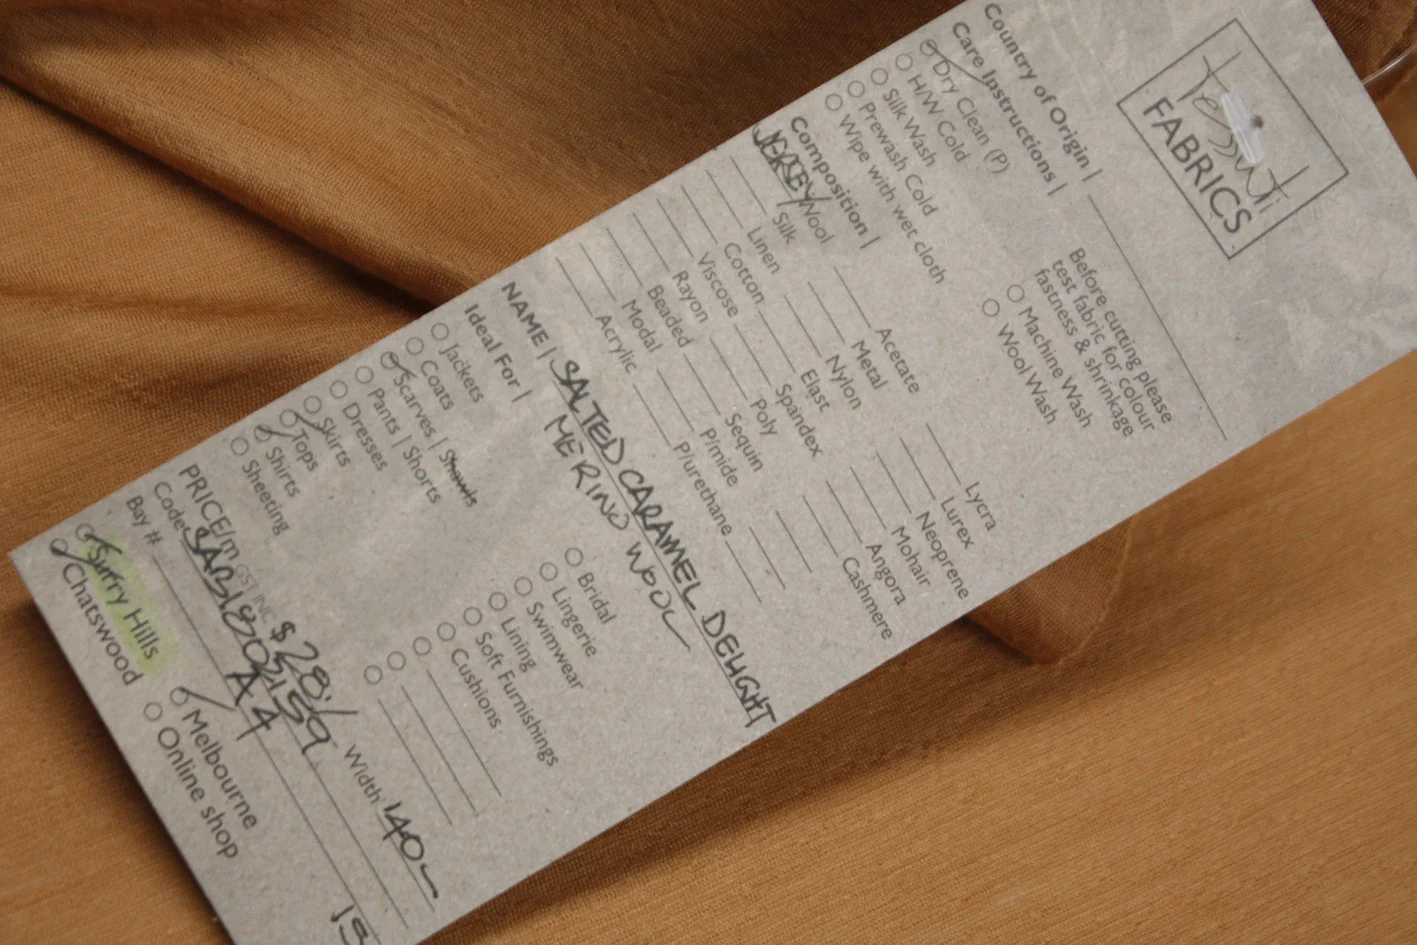 Tessuti
FABRICS
Country of Origin |
Care Instructions |
Dry Clean (P)
H/W Cold
Silk Wash
Prewash Cold
Wipe with wet cloth
Before cutting please
test fabric for colour
fastness & shrinkage
Machine Wash
Wool Wash
Composition |
JERSEY Wool
Silk
Linen
Cotton
Viscose
Rayon
Beaded
Modal
Acrylic
Acetate
Metal
Nylon
Elast
Spandex
Poly
Sequin
P/mide
P/urethane
Lycra
Lurex
Neoprene
Mohair
Angora
Cashmere
NAME | SALTED CARAMEL DELIGHT
MERINO WOOL
Ideal For |
Jackets
Coats
Scarves | Shawls
Pants | Shorts
Dresses
Skirts
Tops
Shirts
Sheeting
Bridal
Lingerie
Swimwear
Lining
Soft Furnishings
Cushions
PRICE/m GST INC $28.1 Width 140
Code
Bay # A4
Surry Hills
Chatswood
Melbourne
Online shop